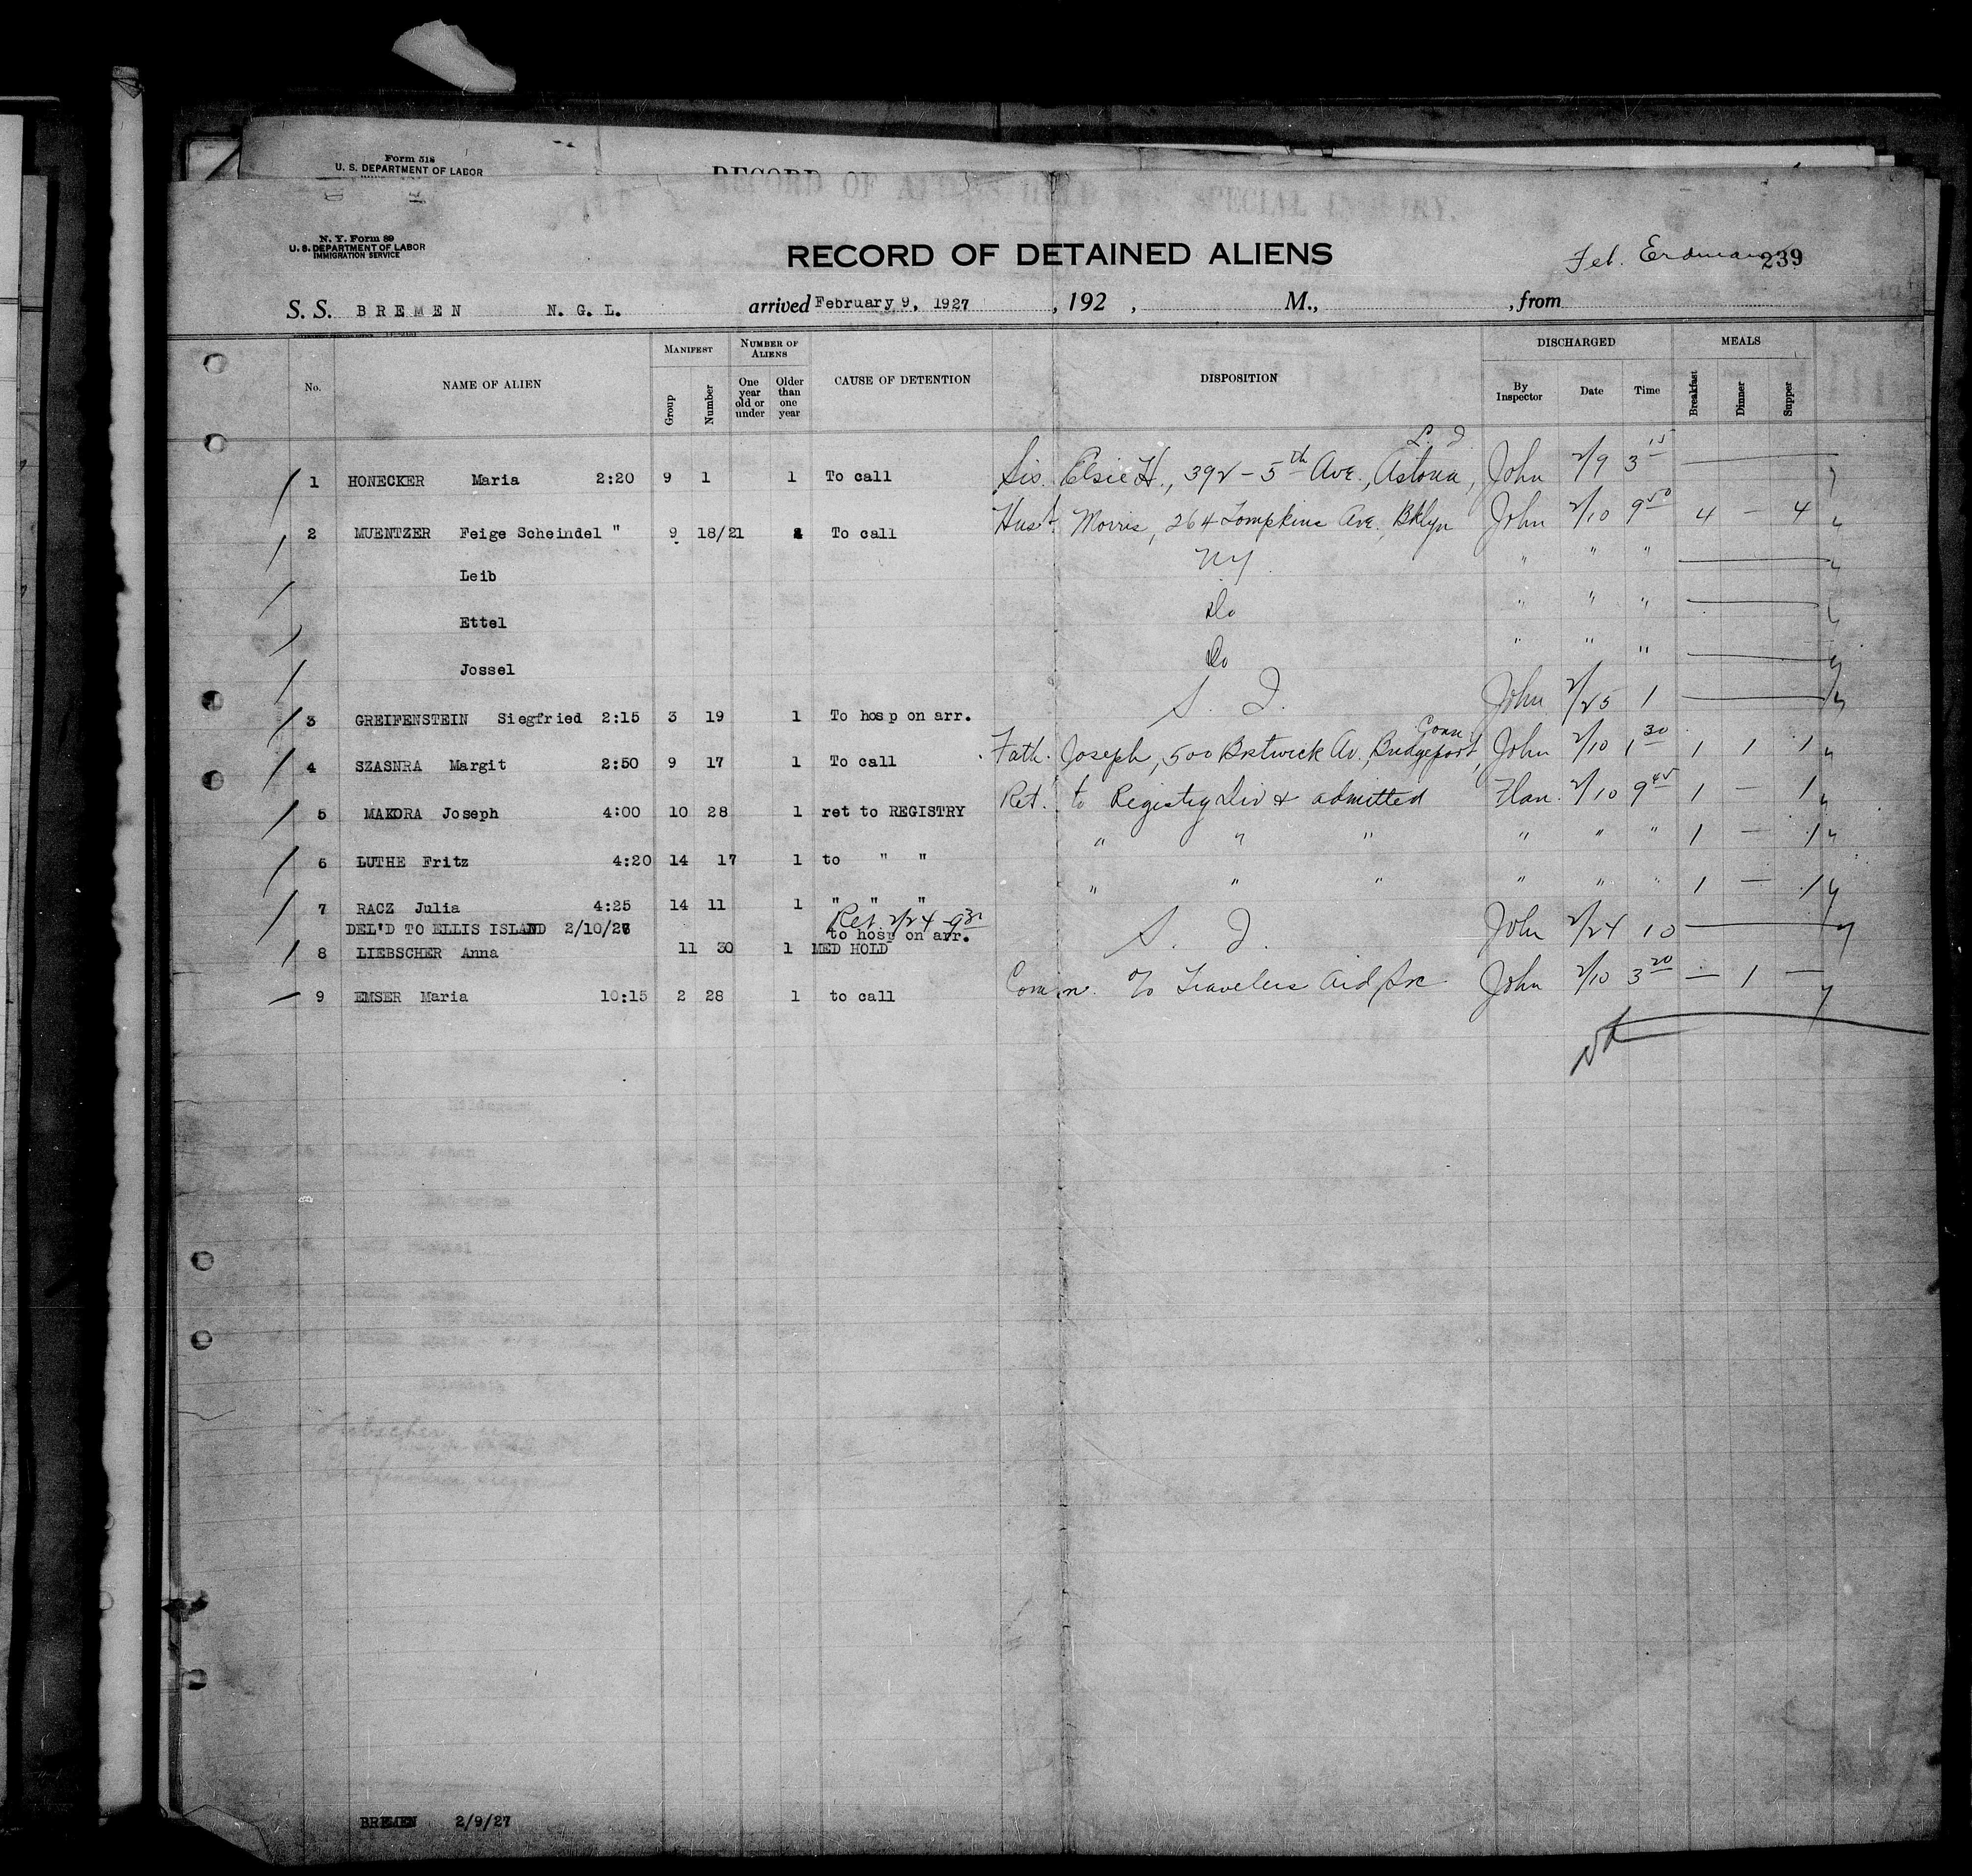 Form 518
U. S. DEPARTMENT OF LABOR
RECORD OF ALIENS HELD SPECIAL INQUIRY.
N. Y. Form 89
U. S. DEPARTMENT OF LABOR
IMMIGRATION SERVICE
RECORD OF DETAINED ALIENS
Feb. Erdman 239
S. S. BREMEN N. G. L. arrived February 9, 1927 , 192 , M., , from
No. NAME OF ALIEN MANIFEST Group Number NUMBER OF ALIENS One year old or under Older than one year CAUSE OF DETENTION DISPOSITION DISCHARGED By Inspector Date Time MEALS Breakfast Dinner Supper
L. I.
1 HONECKER Maria 2:20 9 1 1 To call Sis. Elsie H., 392 - 5th Ave., Astoria, John 2/9 3 15
2 MUENTZER Feige Scheindel " 9 18/21 To call Husb. Morris, 264 Tompkins Ave. Bklyn John 2/10 9 50 4 — 4
Leib NY " " "
Ettel Do " " "
Jossel Do " " "
3 GREIFENSTEIN Siegfried 2:15 3 19 1 To hosp on arr. S. I. John 2/25 1
Conn.
4 SZASNRA Margit 2:50 9 17 1 To call Fath. Joseph, 500 Bostwick Av., Bridgeport, John 2/10 1 30 1 1 1
5 MAKORA Joseph 4:00 10 28 1 ret to REGISTRY Ret. to Registry Div & admitted Flan. 2/10 9 45 1 — 1
6 LUTHE Fritz 4:20 14 17 1 to " " " " " " " " 1 — 1
7 RACZ Julia 4:25 14 11 1 " " " " " " " " " 1 — 1
Ret 2/24 - 9 30
DEL'D TO ELLIS ISLAND 2/10/27 to hosp on arr.
8 LIEBSCHER Anna 11 30 1 MED HOLD S. I. John 2/24 10
9 EMSER Maria 10:15 2 28 1 to call Comm. c/o Travelers Aid Soc John 2/10 3 20 — 1 —
BREMEN 2/9/27